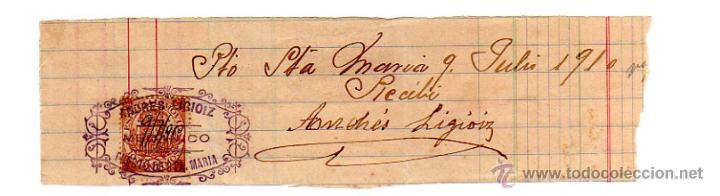 Pto Sta Maria 9 Julio 1910
Recibí
Andrés Ligioiz
ANDRES LIGIOIZ
CO
PUERTO DE STA. MARIA
www.todocoleccion.net